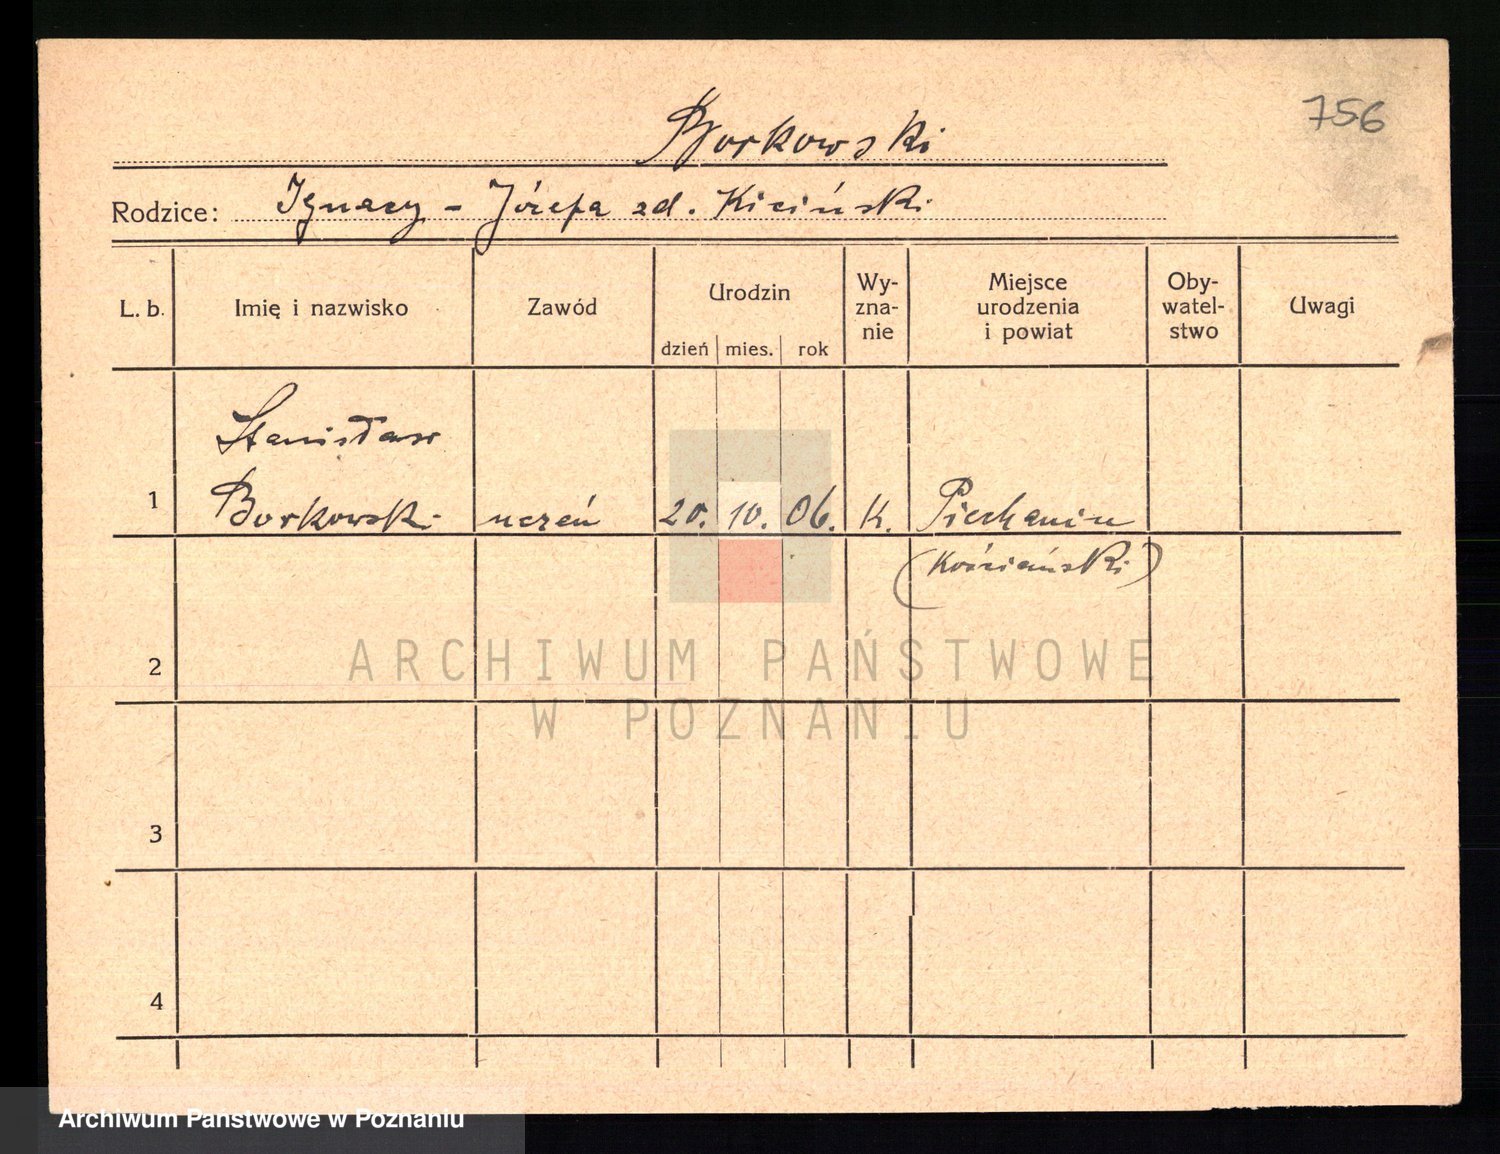 756
Borkowski
Rodzice: Ignacy - Józefa zd. Kiciński
L. b. Imię i nazwisko Zawód Urodzin dzień mies. rok Wy-zna-nie Miejsce urodzenia i powiat Oby-watel-stwo Uwagi
Stanisław
1 Borkowski uczeń 20. 10. 06. K. Piechanin
(Kościański)
2
ARCHIWUM PAŃSTWOWE
W POZNANIU
3
4
Archiwum Państwowe w Poznaniu